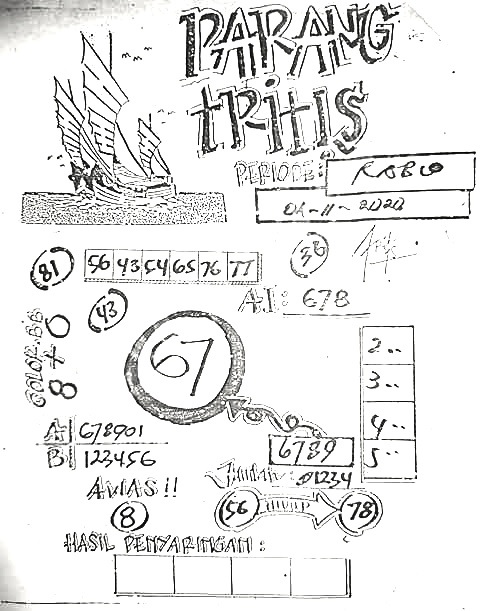 PARANG
TRITIS
PERIODE: RABU
04-11-2020
81 56 43 54 65 76 77 36
AI: 678
43
COLOR.BB
8+0
67
2..
3..
4..
5..
A 678901
B 123456
6789
Jumlah: 01234
AWAS!!
8 56 78
HASIL PENYARINGAN: